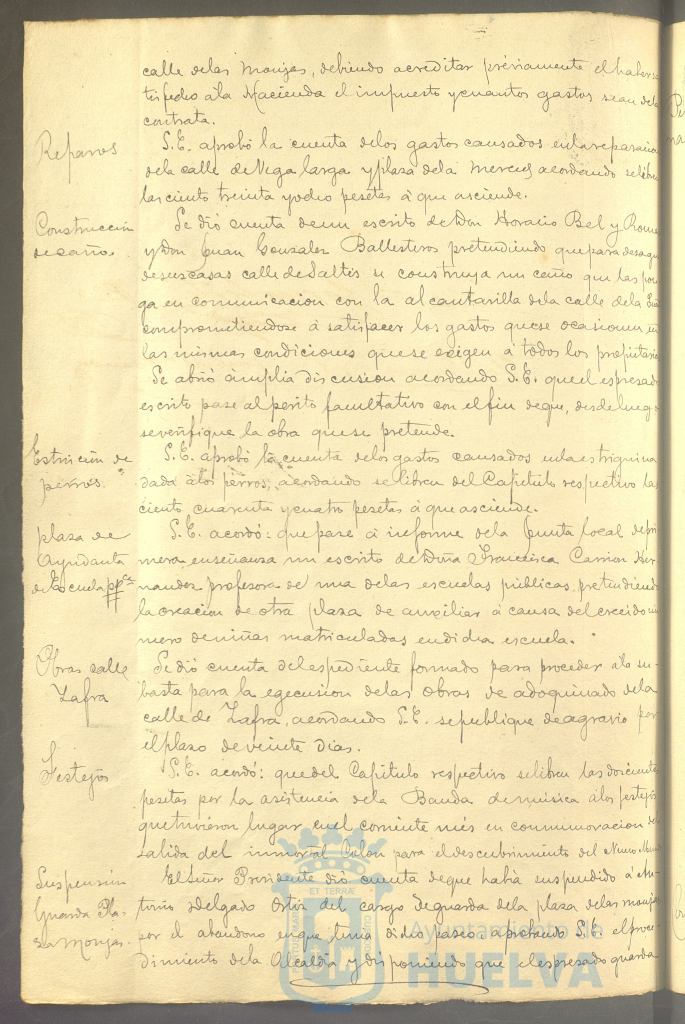 calle de las Monjas, debiendo acreditar préviamente el haber sa
tisfecho á la Hacienda el impuesto y cuantos gastos sean de la
contrata.
Reparos
S.E. aprobó la cuenta de los gastos causados en la reparacion
de la calle de Vega larga y plaza de la Merced acordando se libren
las ciento treinta y ocho pesetas á que asciende.
Construccion
de caño.
Se dió cuenta de un escrito de Don Horacio Bel y Roma
y Don Juan Gonzalez Ballesteros pretendiendo que para desagüe
de sus casas calle de Saltés se construya un caño que las pon
ga en comunicacion con la alcantarilla de la calle de la
comprometiendose á satisfacer los gastos que se ocasionen en
las mismas condiciones que se exigen á todos los propietarios
Se abrió ámplia discusion acordando S.E. que el espresado
escrito pase al perito facultativo con el fin de que, desde luego
se verifique la obra que se pretende.
Estricnina de
perros.
S.E. aprobó la cuenta de los gastos causados en la estriquinina
dada á los perros, acordando se libren del Capítulo respectivo las
ciento cuarenta y cuatro pesetas á que asciende.
plaza de
Ayudanta
de Escuela ppca
S.E. acordó: que pase á informe de la Junta local de pri
mera enseñanza un escrito de Doña Francisca Carrion Her
nandez profesora de una de las escuelas públicas, pretendiendo
la creacion de otra plaza de auxiliar á causa del crecido nú
mero de niñas matriculadas en dicha escuela.
Obras calle
Zafra
Se dió cuenta del espediente formado para proceder á la su
basta para la egecusion de las obras de adoquinado de la
calle de Zafra, acordando S.E. se publique de agravio por
el plazo de veinte dias.
Festejos
S.E. acordó: que del Capítulo respectivo se libren las doscientas
pesetas por la asistencia de la Banda de música á los festejos
que tuvieron lugar en el corriente mes en conmemoracion de la
salida del inmortal Colon para el descubrimiento del Nuevo Mundo
Suspension
Guarda Pla-
za Monjas.
El Señor Presidente dió cuenta de que habia suspendido á An
tonio Delgado Ortiz del cargo de guarda de la plaza de las Monjas
por el abandono en que tenia dicho paseo; aprobando S.E. el proce
dimiento de la Alcaldía y disponiendo que el espresado guarda
Ayuntamiento de
HUELVA